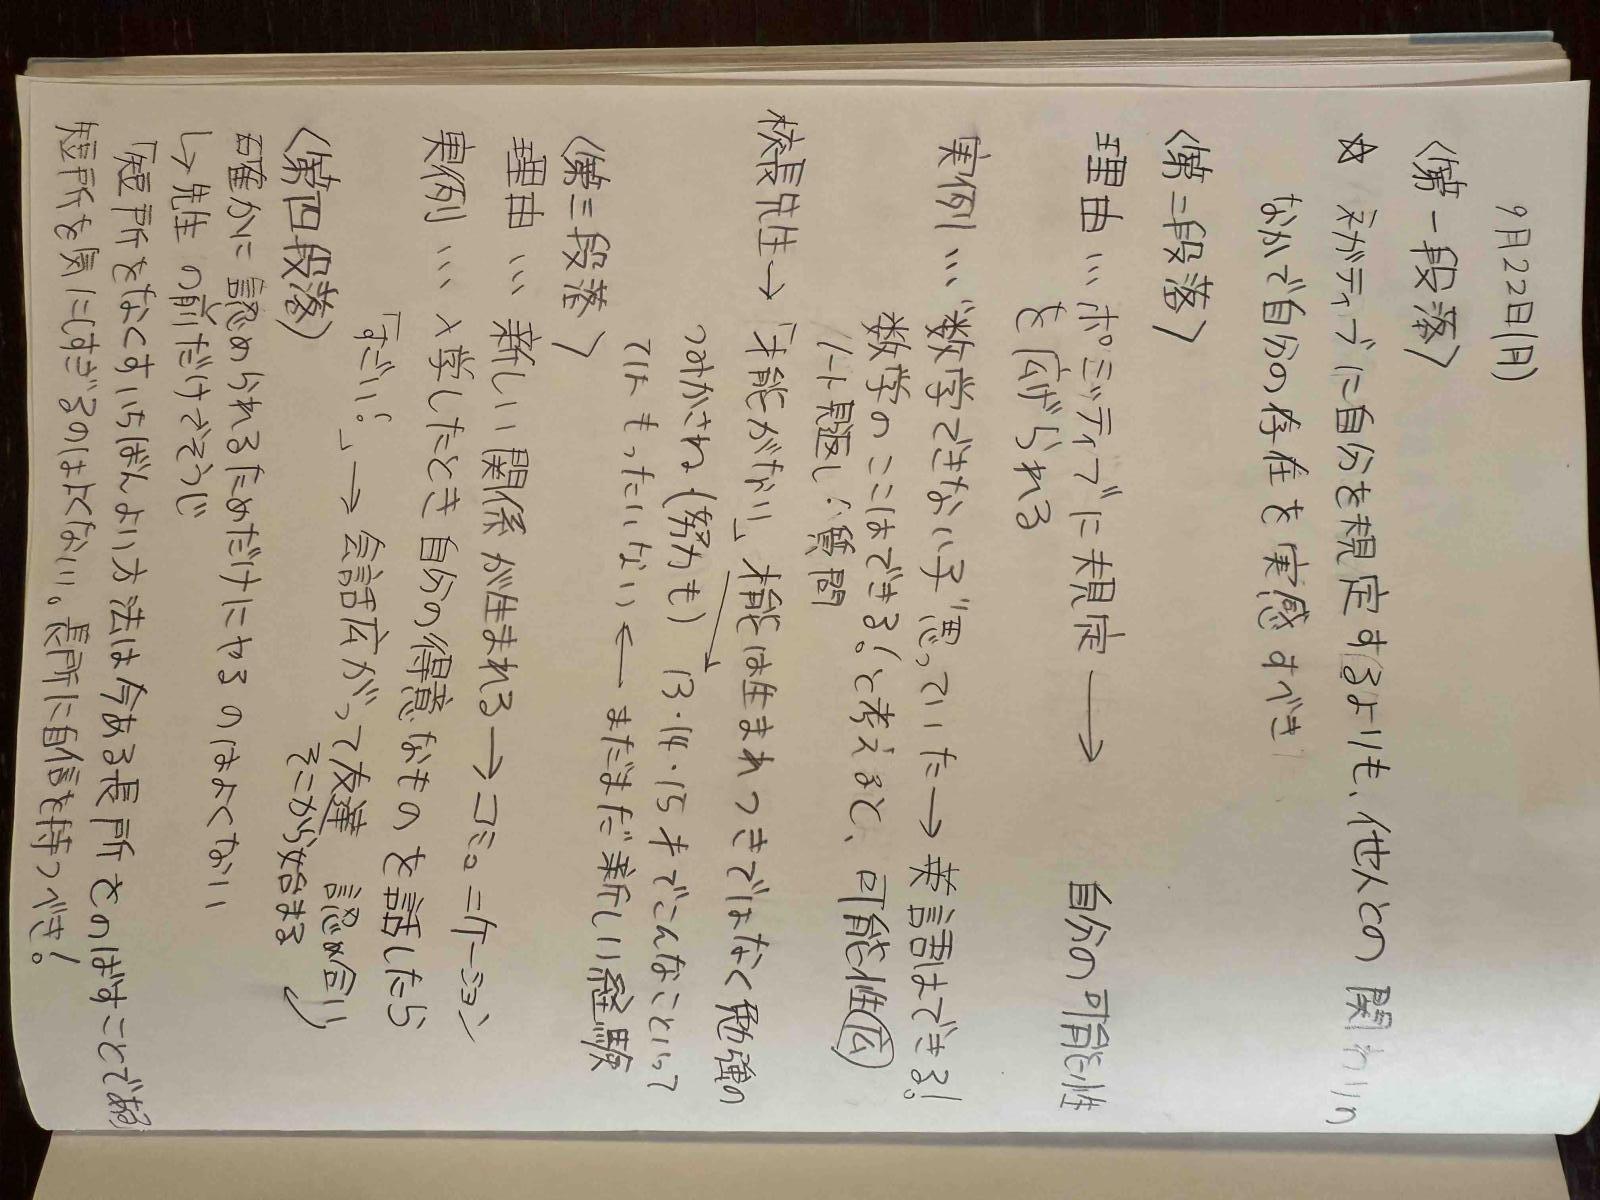 9月22日(月)
〈第一段落〉
☆ ネガティブに自分を規定するよりも、他人との関わりの
なかで自分の存在を実感すべき
〈第二段落〉
理由…ポジティブに規定→ 自分の可能性
を広げられる
実例…"数学できない子"思っていた→英語はできる!
数学のここはできる!と考えると、可能性広
ノート見返し、質問
校長先生→「才能がない」才能は生まれつきではなく勉強の
つみかさね(努力も) 13・14・15才でこんなこといって
てはもったいない ← まだまだ新しい経験
〈第三段落〉
理由…新しい関係が生まれる→コミュニケーション
実例…入学したとき自分の得意なものを話したら
「すごい!」→会話広がって友達 認め合い
そこから始まる
〈第四段落〉
確かに認められるためだけにやるのはよくない
↳先生の前だけでそうじ
「短所をなくすいちばんよい方法は今ある長所をのばすことである
短所を気にしすぎるのはよくない。長所に自信を持つべき!